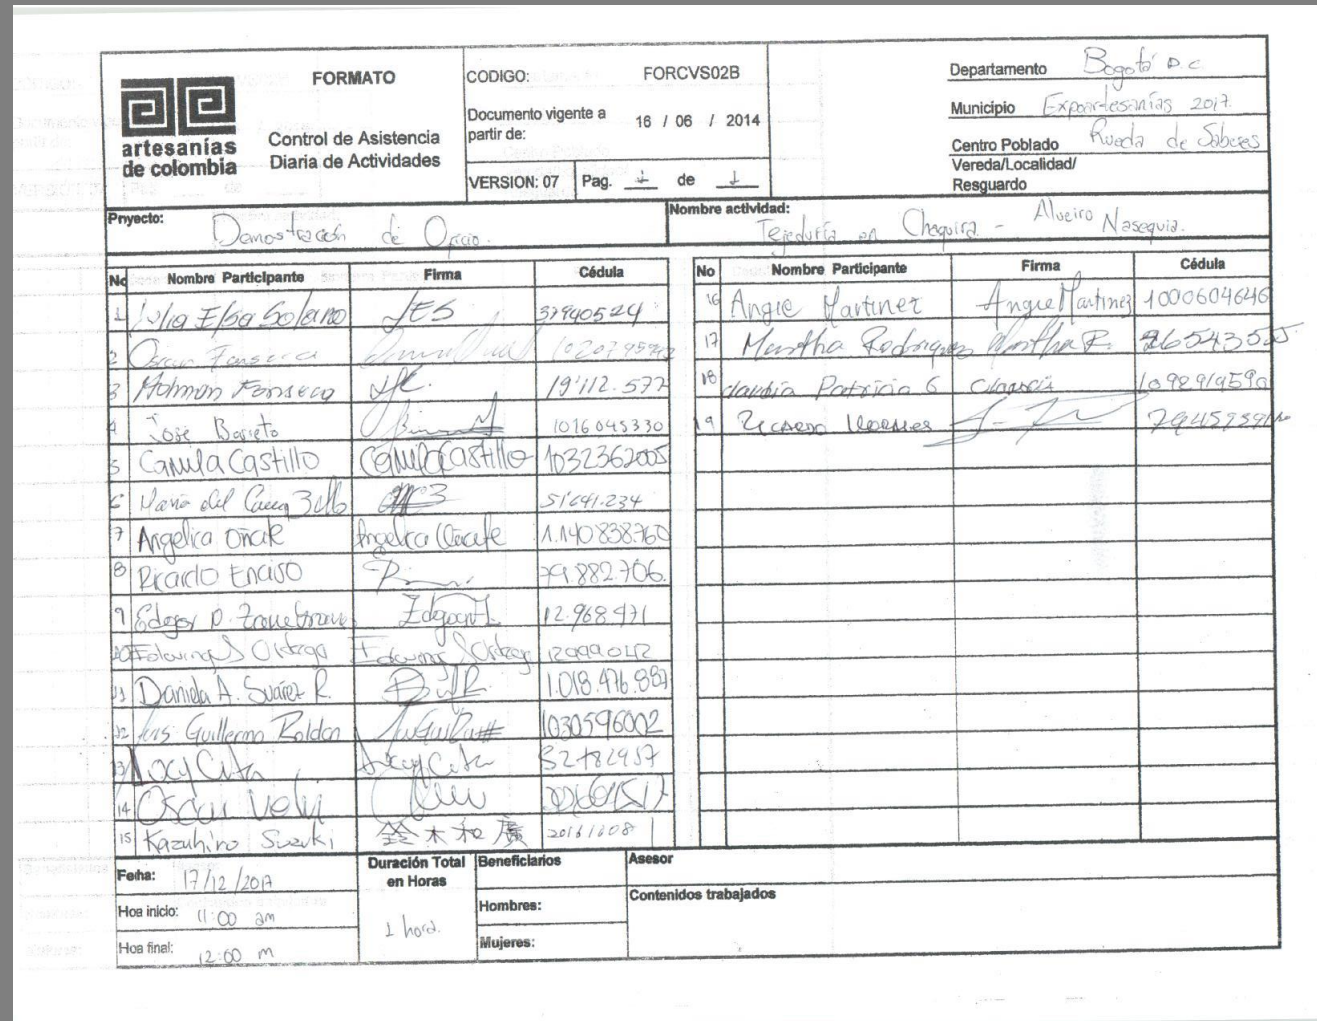 artesanías
de colombia
FORMATO
Control de Asistencia
Diaria de Actividades
CODIGO: FORCVS02B
Documento vigente a
partir de: 16 / 06 / 2014
VERSION: 07 Pag. 1 de 1
Departamento Bogotá D.C
Municipio Expoartesanías 2017
Centro Poblado Rueda de Saberes
Vereda/Localidad/
Resguardo
Pnyecto: Demostración de Oficio.
Nombre actividad: Tejeduría en Chaquira - Alveiro Nasequia.
No Nombre Participante Firma Cédula
1 Julia Elsa Solano JES 37940524
2 Oscar Fonseca
3 Fonseca 19'112.577
4 José Barreto 1016045330
5 Camila Castillo Camila Castillo 1032362005
6 María del 51'641.234
7 Angelica Oñate Angelica Oñate 1.140838760
8 Ricardo Enciso 79.882.706.
9 Edgar 12.968.471
10 Ortega Ortega 12999042
11 Daniela A. Suárez R. 1.018.476.887
12 Luis Guillermo Roldan 1030596002
13
14 Oscar
15 Kazuhiro Suzuki 鈴木和廣 20161608
No Nombre Participante Firma Cédula
16 Angie Martinez Angie Martinez 1000604646
17 Martha Rodriguez Martha R. 26543555
18 Claudia Patricia G Claudia
19
Feha: 17/12/2017
Hoa inicio: 11:00 am
Hoa final: 12:00 m
Duración Total
en Horas
1 hora.
Beneficiarios
Hombres:
Mujeres:
Asesor
Contenidos trabajados